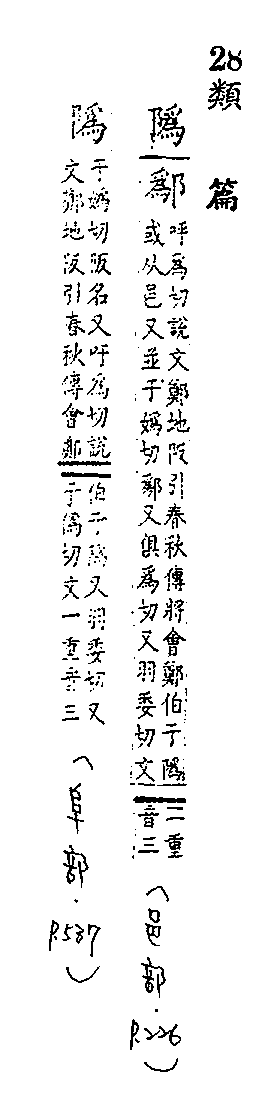 28類篇
隖鄬呼為切說文鄭地阪引春秋傳將會鄭伯于隖
或从邑又並于媯切鄬又俱為切又羽委切文二重音三
(邑部.P.226)
隖于媯切阪名又吁為切說文鄭地阪引春秋傳會鄭伯于隖又羽委切又于僞切文一重音三
(阜部.P.537)